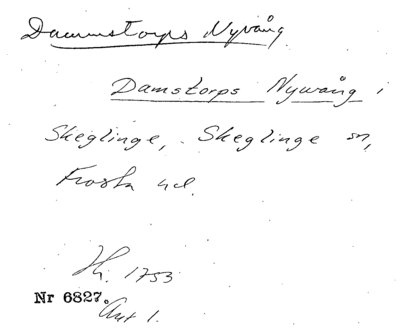 Dammstorps Nyvång
Damstorps Nywång i
Skeglinge, Skeglinge sn,
Frosta hd.
1753
Nr 6827.
Akt 1.